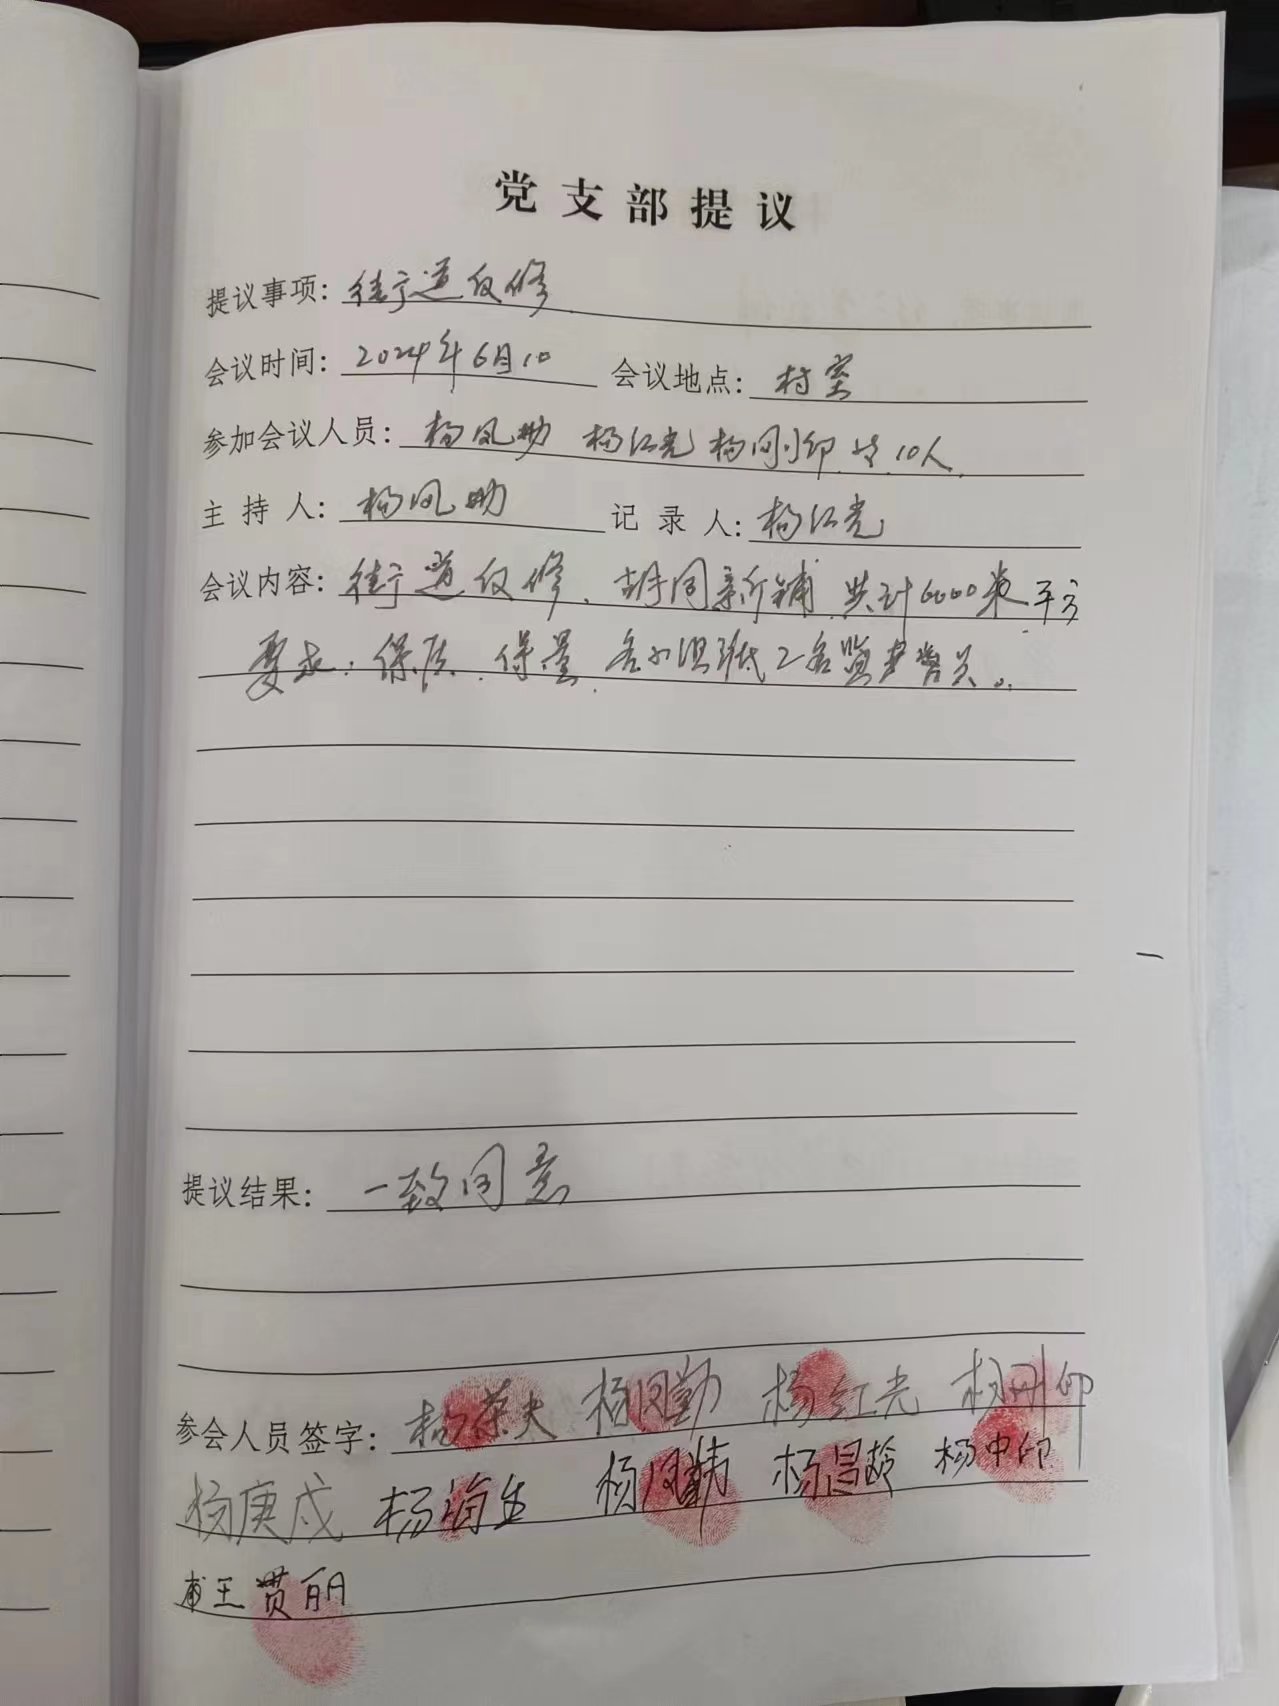 党支部提议
提议事项：街道返修
会议时间：2024年6月10 会议地点：村室
参加会议人员：杨凤勤 杨红光 杨刚印 等10人
主持人：杨凤勤 记录人：杨红光
会议内容：街道返修、胡同新铺 共计6000米平方
要求：保质、保量、各小组派2名监督员。
提议结果：一致同意
参会人员签字：杨荣夫 杨凤勤 杨红光 杨刚印
杨庚戌 杨海生 杨凤 杨昌龄 杨中印
王贯丽